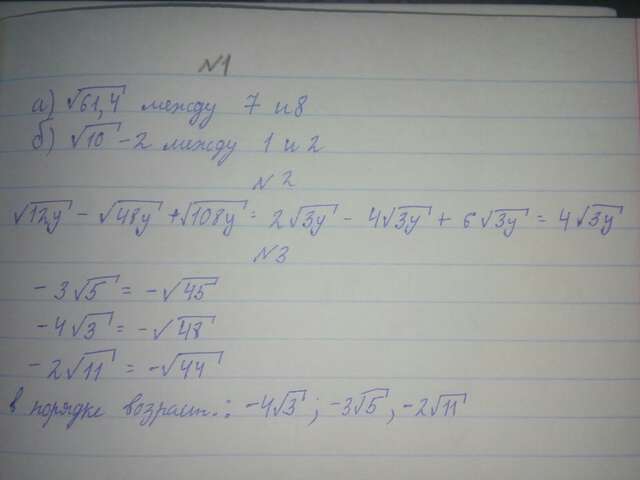 №1
а) √61,4 между 7 и 8
б) √10 - 2 между 1 и 2
№2
√12y - √48y + √108y = 2√3y - 4√3y + 6√3y = 4√3y
№3
- 3√5 = -√45
- 4√3 = -√48
- 2√11 = -√44
в порядке возраст.: -4√3; -3√5, -2√11